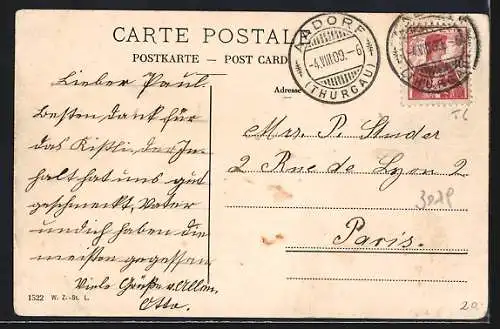 CARTE POSTALE
POSTKARTE — POST CARD
AADORF
-4.VIII.09. -6
(THURGAU)
Adresse
Lieber Paul.
Besten Dank für
das Kistli, der In-
halt hat uns gut
geschmeckt, Vater
und ich haben die
meisten gegessen
Viele Grüße v. Allen
Otto.
Mrs. P. Studer
2 Rue de Lyon 2
Paris.
1522 W. Z.-St. L.
20.-